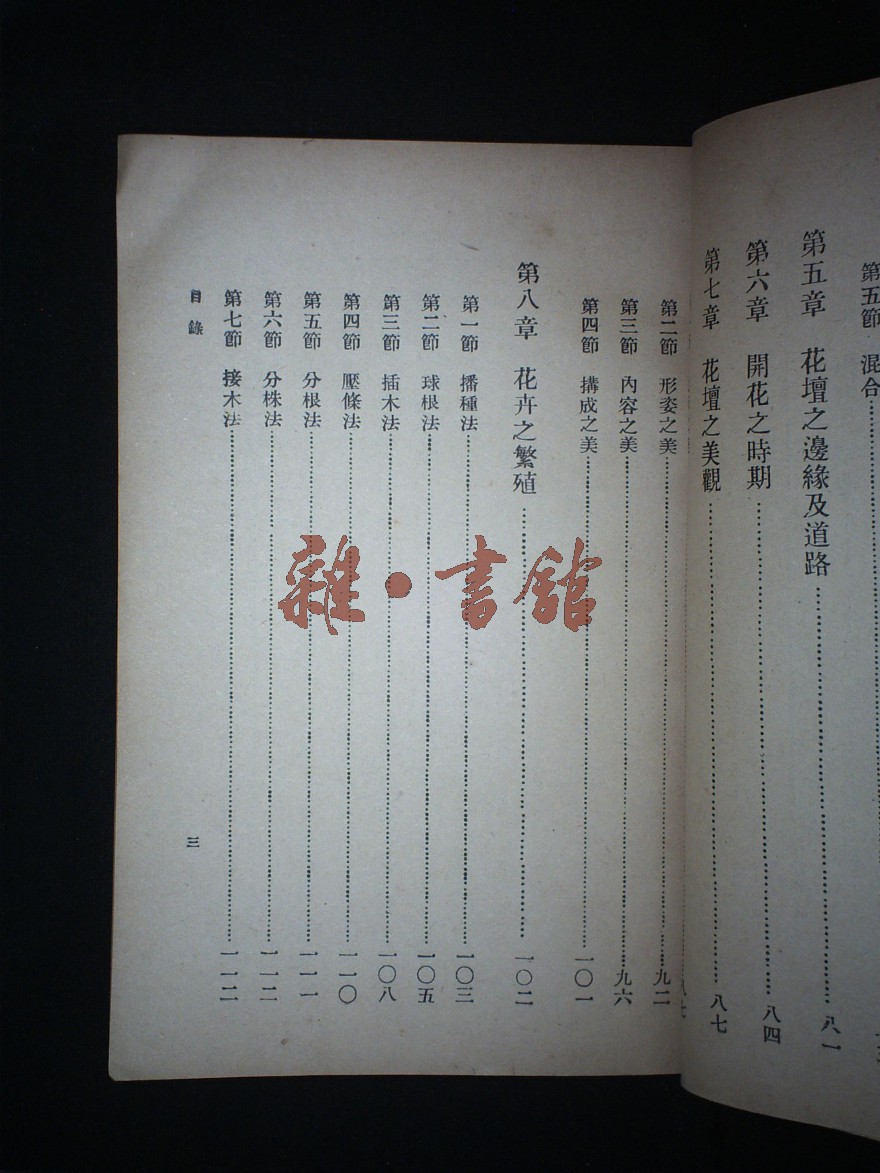 第五節 混合
第五章 花壇之邊緣及道路 八一
第六章 開花之時期 八四
第七章 花壇之美觀 八七
八七
第二節 形姿之美 九二
第三節 內容之美 九六
第四節 搆成之美 一〇一
第八章 花卉之繁殖 一〇二
第一節 播種法 一〇三
第二節 球根法 一〇五
第三節 插木法 一〇八
第四節 壓條法 一一〇
第五節 分根法 一一一
第六節 分株法 一一二
第七節 接木法 一一二
目錄 三
雜·書館